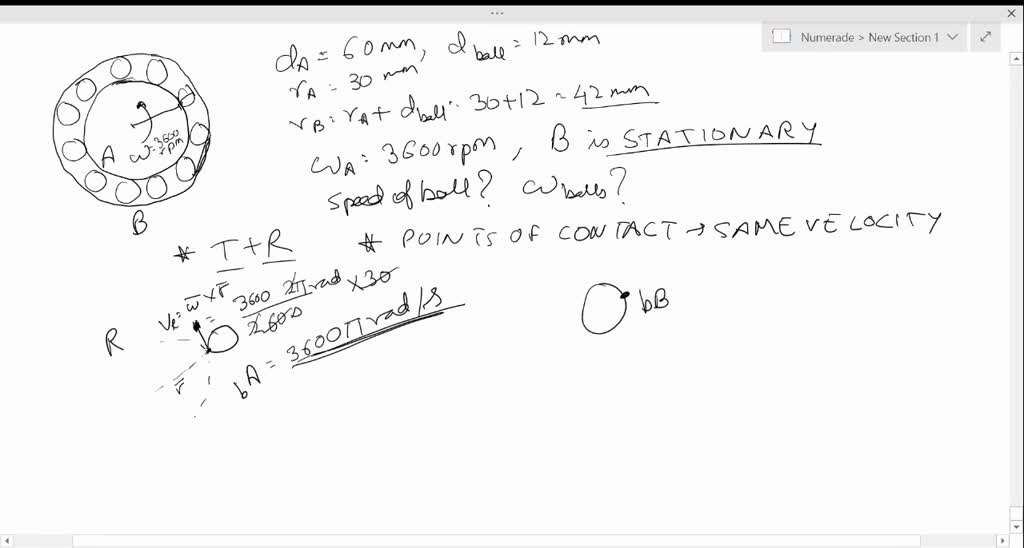 Numerade > New Section 1
d_A = 60 mm, d_ball = 12 mm
r_A = 30 mm
r_B = r_A + d_ball = 30+12 = 42 mm
ω_A = 3600 rpm, B is STATIONARY
speed of ball? ω_balls?
A
ω=3600 rpm
B
* T + R * POINTS OF CONTACT → SAME VELOCITY
V_R = ω̅ × r̅ = 3600 2π rad × 30
R
r̅
bA = 3600 π rad/s
bB